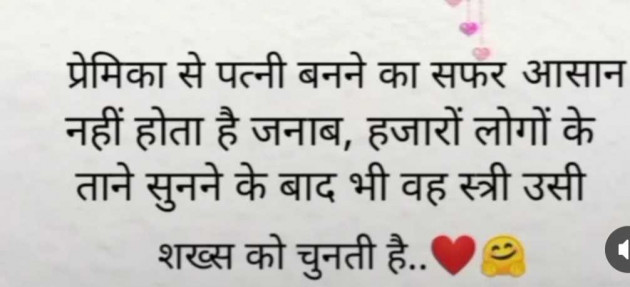 प्रेमिका से पत्नी बनने का सफर आसान
नहीं होता है जनाब, हजारों लोगों के
ताने सुनने के बाद भी वह स्त्री उसी
शख्स को चुनती है..❤️🤗